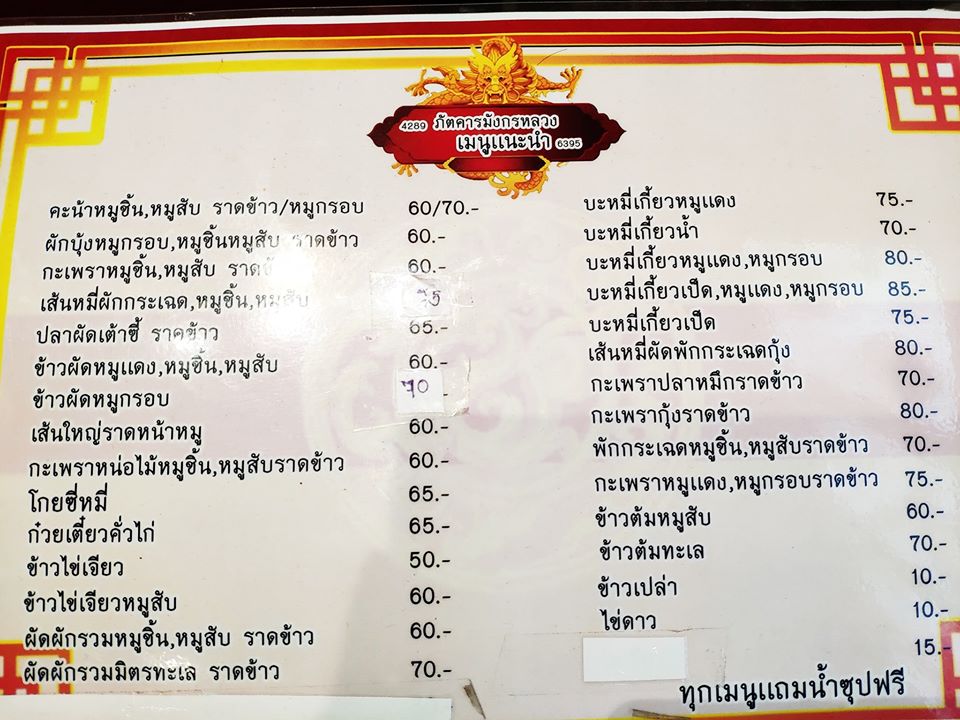 4289 ภัตคารมังกรหลวง
เมนูแนะนำ 6395
คะน้าหมูชิ้น,หมูสับ ราดข้าว/หมูกรอบ 60/70.-
ผักบุ้งหมูกรอบ,หมูชิ้นหมูสับ ราดข้าว 60.-
กะเพราหมูชิ้น,หมูสับ 60.-
เส้นหมี่ผักกระเฉด,หมูชิ้น,หมูสับ 75
ปลาผัดเต้าซี้ ราคข้าว 65.-
ข้าวผัดหมูแดง,หมูชิ้น,หมูสับ 60.-
ข้าวผัดหมูกรอบ 70 -
เส้นใหญ่ราดหน้าหมู 60.-
กะเพราหน่อไม้หมูชิ้น,หมูสับราดข้าว 60.-
โกยซี่หมี่ 65.-
ก๋วยเตี๋ยวคั่วไก่ 65.-
ข้าวไข่เจียว 50.-
ข้าวไข่เจียวหมูสับ 60.-
ผัดผักรวมหมูชิ้น,หมูสับ ราดข้าว 60.-
ผัดผักรวมมิตรทะเล ราดข้าว 70.-
บะหมี่เกี้ยวหมูแดง 75.-
บะหมี่เกี้ยวน้ำ 70.-
บะหมี่เกี้ยวหมูแดง,หมูกรอบ 80.-
บะหมี่เกี้ยวเป็ด,หมูแดง,หมูกรอบ 85.-
บะหมี่เกี้ยวเป็ด 75.-
เส้นหมี่ผัดพักกระเฉดกุ้ง 80.-
กะเพราปลาหมึกราดข้าว 70.-
กะเพรากุ้งราดข้าว 80.-
พักกระเฉดหมูชิ้น,หมูสับราดข้าว 70.-
กะเพราหมูแดง,หมูกรอบราดข้าว 75.-
ข้าวต้มหมูสับ 60.-
ข้าวต้มทะเล 70.-
ข้าวเปล่า 10.-
ไข่ดาว 10.-
15.-
ทุกเมนูแถมน้ำซุปฟรี